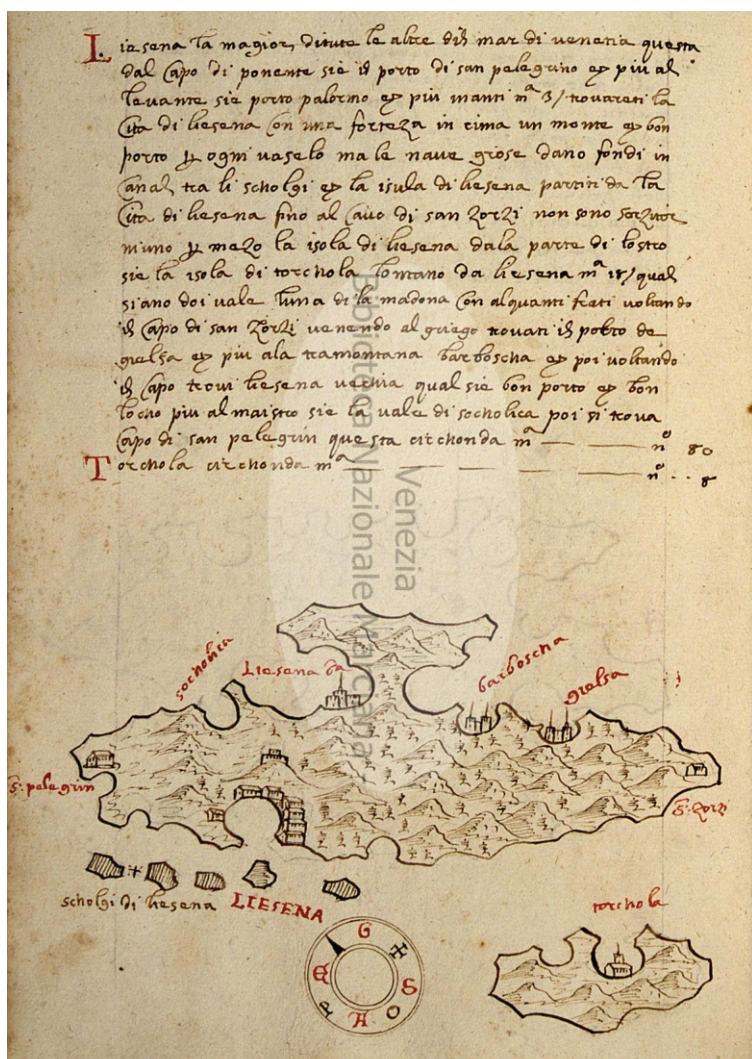 Liesena la magior, di tute le altre dil mar di venetia questa
dal Capo di ponente sie il porto di san pelegrino et piu al
levante sie porto palormo et piu inanti mᵃ 3/ trovareti la
Cita di liesena con una forteza in cima un monte et bon
porto ꝑ ogni vaselo ma le nave grose dano fondi in
Canal tra li scholgi et la isula di liesena partiti da la
Cita di liesena fino al Cavo di san Zorzi non sono
niuno ꝑ mezo la isola di liesena dala parte di lostro
sie la isola di torchola lontano da liesena mᵃ 18/ qual
siano doi vale luna di la madona con alquanti frati voltando
il Capo di san Zorzi venendo al griego trovati il porto de
gielsa et piu ala tramontana barboscha et poi voltando
il Capo trovi liesena vechia qual sie bon porto et bon
locho piu al maistro sie la vale di socholica poi si trova
Capo di san pelegrin questa circhonda mᵃ — — nº 80
Torchola circhonda mᵃ — — — — — nº .. 8
socholica
Liesena va
barboscha
gielsa
S: pelegrin
S: Zorzi
scholgi di liesena
LIESENA
torchola
G
S
O
A
P
E
Venezia
Biblioteca Nazionale Marciana